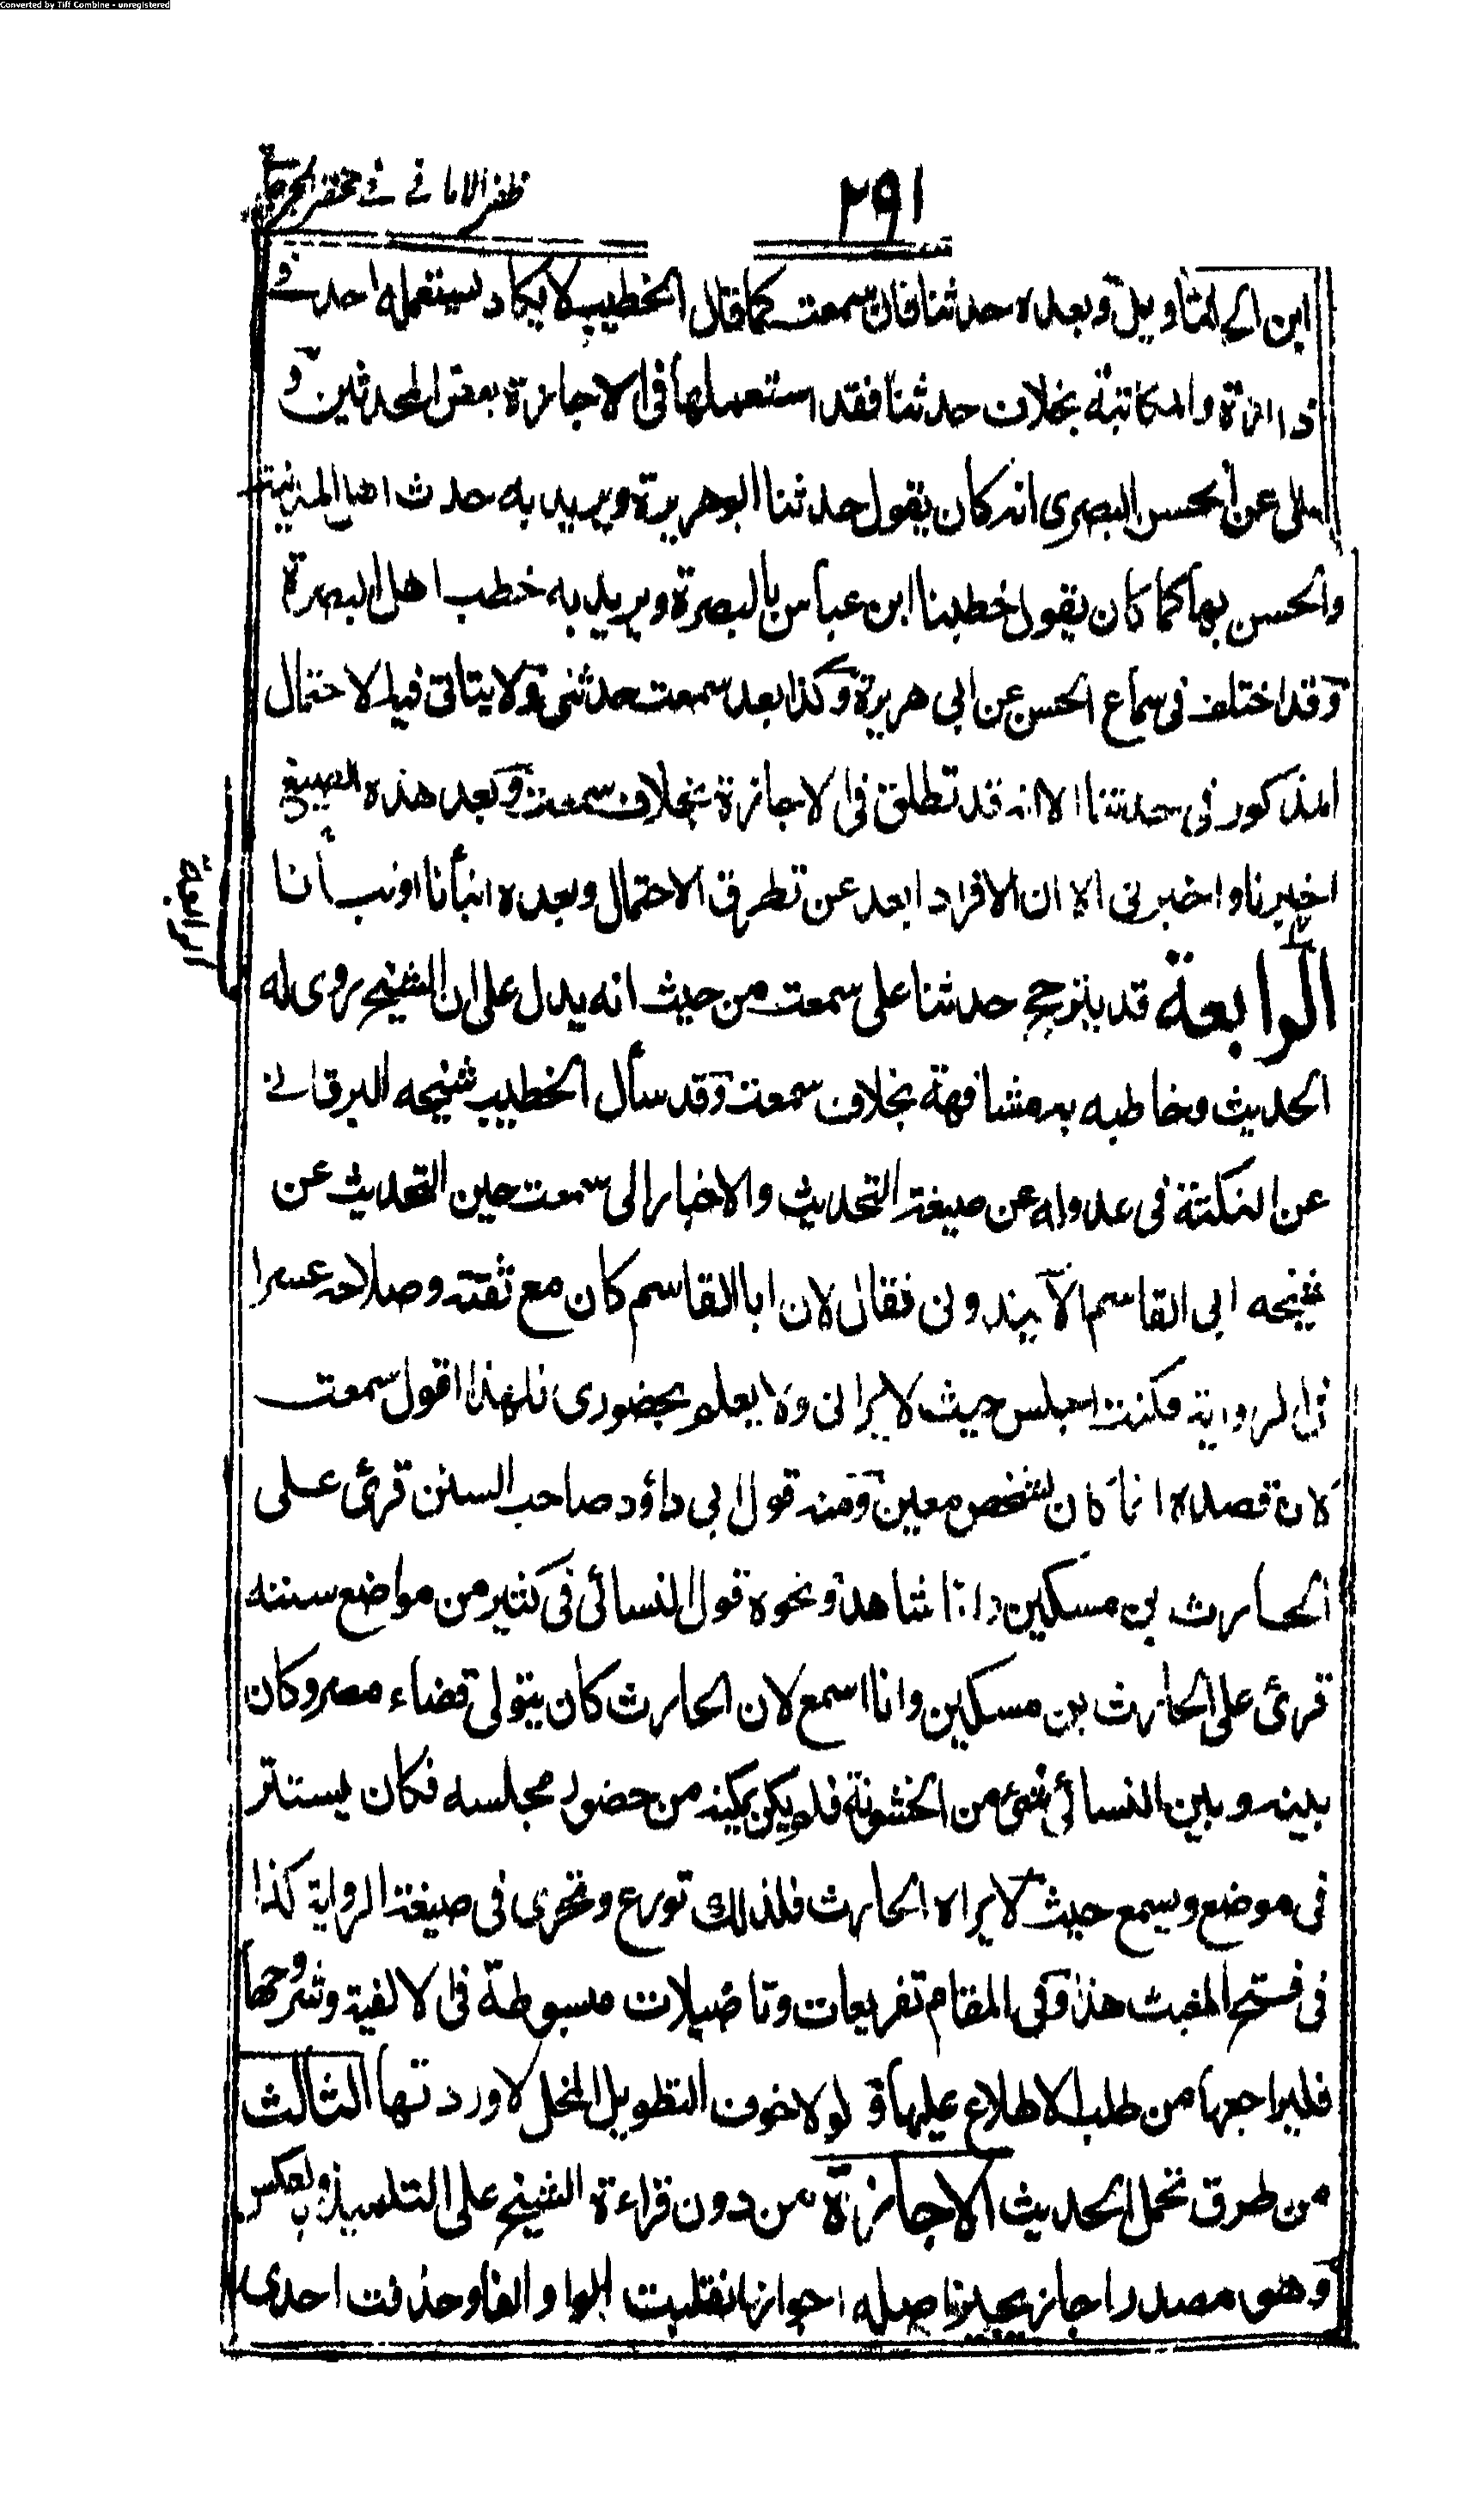 Converted by Tiff Combine - unregistered
ظفر الامانی فی مختصر الجرجانی
۲۹۱
ابن الى التأويل وبعده حدثنا فان سمعت كما قال الخطيب لا يكاد يستعمله احد فى
والمكاتبة بخلاف حدثنا فقد استعملها فى الاجازة بعض المحدثين و
عن الحسن البصرى انه كان يقول حدثنا ابو هريرة ويريد به حدث اهل المدينة
والحسن بها كما كان يقول خطبنا ابن عباس بالبصرة ويريد به خطب اهل البصرة
وقد اختلف فى سماع الحسن عن ابى هريرة وكذا بعد سمعت حدثنى ولا يتاتى فيه الاحتمال
المذكور فى حدثنا الا انه قد تطلق فى الاجازة بخلاف سمعت وبعد هذه الصيغ
اخبرنا واخبرنى الا ان الافراد ابعد عن تطرق الاحتمال وبعده انبأنا او نبأنا
الرابعة قد يترجح حدثنا على سمعت من حيث انه يدل على ان الشيخ روى له
الحديث وخاطبه به مشافهة بخلاف سمعت وقد سأل الخطيب شيخه البرقانى
عن النكتة فى عدوله عن صيغة التحديث والاخبار الى سمعت حين التحديث عن
شيخه ابى القاسم الآبندونى فقال لان ابا القاسم كان مع ثقته وصلاحه عسرا
فى الرواية فكنت اجلس حيث لا يرانى ولا يعلم بحضورى فلهذا اقول سمعت
لان قصده انما كان لشخص معين ومنه قول ابى داؤد صاحب السنن قرئ على
الحارث بن مسكين وانا شاهد ونحوه قول النسائى فى كثير من مواضع سننه
قرئ على الحارث بن مسكين وانا اسمع لان الحارث كان يتولى قضاء مصر وكان
بينه وبين النسائى شئ من الخشونة فلم يكن يمكنه من حضور مجلسه فكان يستتر
فى موضع ويسمع حيث لا يراه الحارث فلذلك تورع وتحرى فى صيغة الرواية كذا
فى فتح المغيث هذا وفى المقام تفريعات وتاصيلات مبسوطة فى الالفية وشروحها
فليراجعها من طلب الاطلاع عليها ولولا خوف التطويل المخل لاوردتها الثالث
من طرق تحمل الحديث الاجازة من دون قراءة الشيخ على التلميذ وبعكس
وهو مصدر اجاز يجيز اصله اجواز انقلبت الواو الفا وحذفت احدى